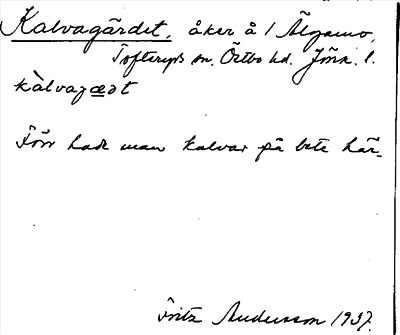 Kalvagärdet, åker å 1 Älgamo,
Tofteryds sn, Östbo hd. Jönk. l.
kàlvagædt
Förr hade man kalvar på bete här.
Fritz Andersson 1937.